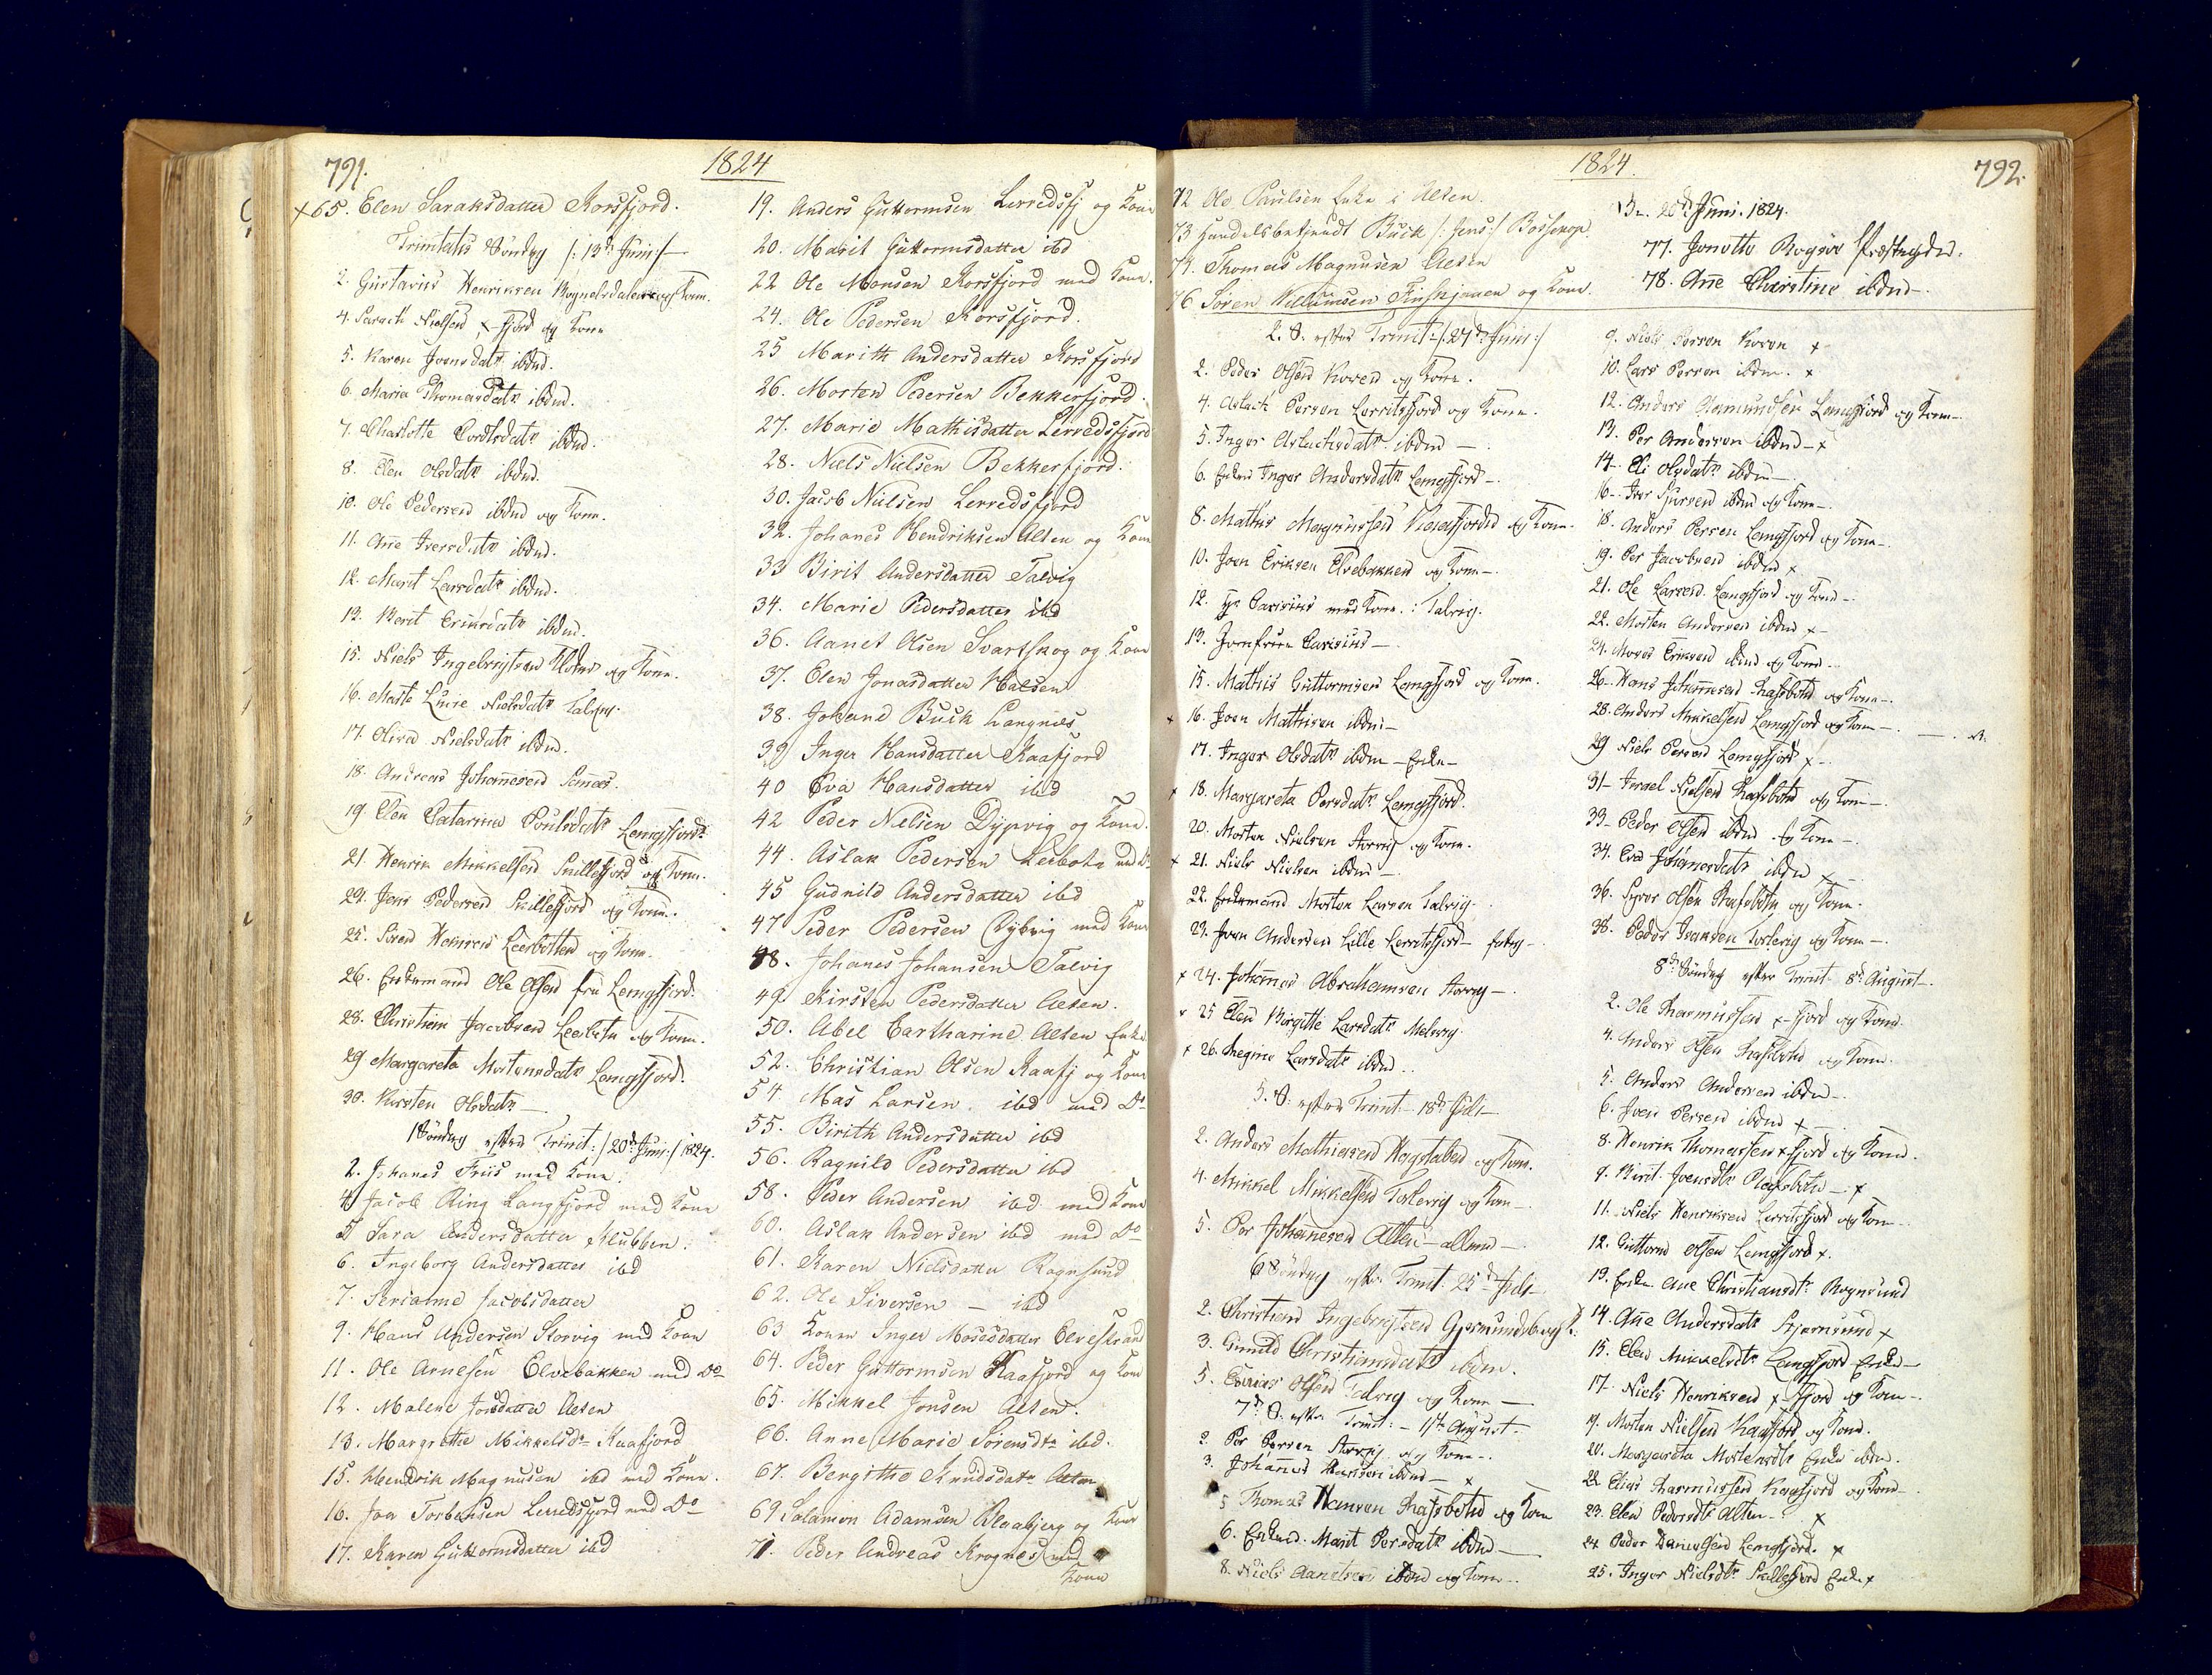 791.
1824
×65. Elen Saraksdatter Korsfjord.
Trinitatis Søndag /: 13de Junii :/
2. Gustavus Henriksen Rognelvdalen og Kone.
4. Sarach Nielsen ×fjord og Kone
5. Karen Joensdatr ibdm.
6. Maria Thomasdatr ibdm.
7. Charlotte datr ibdm.
8. Elen Olsdatr ibdm.
10. Ole Pedersen ibdm og Kone.
11. Ane Iversdatr ibdm.
12. Marit Larsdatr ibdm.
13. Berit Eriksdatr ibdm.
15. Niels Ingebrigtsen og Kone.
16. Marte Nielsdatr Talvig.
17. Oliva Nielsdatr ibdm.
18. Andreas Johannesen
19. Elen Catarina Poulsdatr Langfjord.
21. Henrik Mikkelsen Skillefjord og Kone.
24. Jens Pedersen Skillefjord og Kone.
25. Søren Leerbotten og Kone.
26. Enkemand Ole Olsen fra Langfjord.
28. Christian Jacobsen Leerbotn og Kone.
29 Margareta Mortensdatr Langfjord.
30. Kirsten Olsdatr —
1 Søndag efter Trinit: /: 20de Juni :/ 1824.
2. Johanes Friis med Kone.
4 Jacob Ring Langfjord med Kone
5 Sara Andersdatter Klubben.
6. Ingeborg Andersdatter ibd
7. Serianne Jacobsdatter
9. Hans Andersen Storvig med Kone
11. Ole Arnesen Elvebakken med Do
12. Malene Jonsdatter Alten
13. Margrethe Mikkelsdr Kaafjord
15. Hendrik Magnusen ibd med Kone.
16. Joer Torbensen Lerredsfjord med Do
17. Karen Guttormsdatter ibd
19. Anders Guttormsen Lerredsfj og Kone
20. Marit Guttormsdatter ibd
22 Ole Monsen Korsfjord med Kone.
24. Ole Pedersen Korsfjord.
25 Marith Andersdatter Korsfjord
26. Morten Pedersen Bekkerfjord.
27. Marie Mathisdatter Lerredsfjord
28. Niels Nielsen Bekkerfjord.
30. Jacob Nielsen Lerredsfjord
32. Johanes Hendriksen Alten og Kone
33 Birit Andersdatter Talvig
34. Marie Pedersdatter ibd
36. Aanet Olsen Svartskog og Kone
37. Elen Jonasdatter Halsen
38. Johane Buck Langnæs
39 Inger Hansdatter Kaafjord
40 Eva Hansdatter ibd
42 Peder Nielsen Dypvig og Kone.
44. Aslak Pedersen Leebotn med Do
45 Gudnild Andersdatter ibd
47 Peder Pedersen Dybvig med Kone
48. Johanes Johansen Talvig
49. Kirsten Pedersdatter Alten.
50. Abel Cartharine Alten Enke
52. Christian Olsen Kaafj og Kone
54. Mas Larsen ibd med Do
55. Birith Andersdatter ibd
56. Ragnild Pedersdatter ibd
58. Peder Andersen ibd med Kone
60. Aslak Andersen ibd med Do
61. Karen Nielsdatter Rognsund
62. Ole Siversen — ibd
63 Konen Inger Mosesdatter Elvestrand
64. Peder Guttormsen Kaafjord og Kone
65. Mikkel Jonsen Alten.
66. Anne Marie Sørensdr ibd.
67. Bergitthe Knudsdatr Alten
69 Salamon Adamsen Blaabjerg og Kone
71. Peder Andreas Krognes med
Kone
1824.
792.
72 Ole Paulsen i Alten.
73 Handelsbetjendt Buck /: Jens :/ Bossekop.
74. Thomas Magnusen Alten
76 Søren Willumsen Finskjaaen og Kone.
20de Juni. 1824.
77. Jonetta
78. Ane Christine ibdm —
2. S. efter Trinit: /: 27de Juni :/
2. Peder Olsen Koren og Kone.
4. Aslach Persen Lerritsfjord og Kone.
5. Inger Aslachsdatr ibdm —
6. Enken Inger Andersdatr Langfjord —
8. Mathis Magnussen og Kone.
10. Joen Eriksen Elvebakken og Kone —
12. med Kone: Talvig.
13. Jomfrue —
15. Mathis Guttormsen Langfjord og Kone.
× 16. Joen Mathisen ibdm —
17. Inger Olsdatr ibdm — Enke —
× 18. Margareta Persdatr Langfjord.
20. Morten Nielsen Storvig og Kone.
× 21. Niels Nielsen ibdm —
22. Enkemand Morten Larsen Talvig.
23. Joen Andersen Lille Lerritsfjord —
× 24. Johannes Abrahamsen Storvig —
× 25 Elen Birgitte Larsdatr Melsvig.
× 26. Regine Larsdatr ibdm..
5. S. efter Trinit — 18de Juli —
2. Anders Mathisen og Kone.
4. Mikkel Mikkelsen Toslevig og Kone —
5. Per Johannesen Alten — allene —
6 Søndag efter Trinit: 25de Juli
2. Christian Ingebrigtsen
3. Gunild Christiansdatr ibdm.
5. Olsen Talvig og Kone —
7de S. efter Trinit: — 1ste August —
2. Per Persen Storvig og Kone —
3. Johannes Hansen ibdm — ×
5 Thomas Hansen Rafsbotn og Kone
6. Enken Marit Persdatr ibdm —
8. Niels Aanetsen ibdm og Kone —
9. Niels Persen Koren ×
10. Lars Persen ibdm. ×
12. Anders Aamundsen Langfjord og Kone —
13. Per Andersen ibdm — ×
14. Eli Olsdatr ibdm —
16. Iver Sjursen ibdm og Kone —
18. Anders Persen Langfjord og Kone —
19. Per Jacobsen ibdm ×
21. Ole Larsen Langfjord og Kone —
22. Morten Andersen ibdm ×
24. Moses Eriksen ibdm og Kone —
26. Hans Johannesen Rafsbotn og Kone —
28. Anders Mikkelsen Langfjord og Kone —
29 Niels Persen Langfjord ×
31 — Israel Nielsen Rafsbotn og Kone —
33 — Peder Olsen ibdm og Kone —
34. Eva Johannesdatr ibdm ×
36. Syver Olsen Rafsbotn og Kone.
38. Peder Iversen Toslevig og Kone —
8de Søndag efter Trinit. 8de August —
2. Ole Rasmussen ×-fjord og Kone.
4. Anders Olsen Rafsbotn og Kone.
5. Anders Andersen ibdm —
6. Joen Persen ibdm ×
8. Henrik Thomassen ×fjord og Kone.
9. Birit Joensdtr Rafsbotn — ×
11. Niels Henriksen Lerritsfjord og Kone
12. Guttorm Olsen Langfjord ×.
13. Enke Ane Christiansdtr Rognsund
14. Ane Andersdatr Stjernsund ×
15. Elen Mikkelsdtr Langfjord Enke —
17. Niels Henriksen ×fjord og Kone —
19. Morten Nielsen Kaafjord og Kone.
20. Margareta Mortensdtr Enke ibdm.
22 Elias Rasmussen Kaafjord og Kone —
23. Elen Pedersdtr Alten — ×
24 Peder Danielsen Langfjord. ×
25. Inger Nielsdtr Skillefjord Enke ×